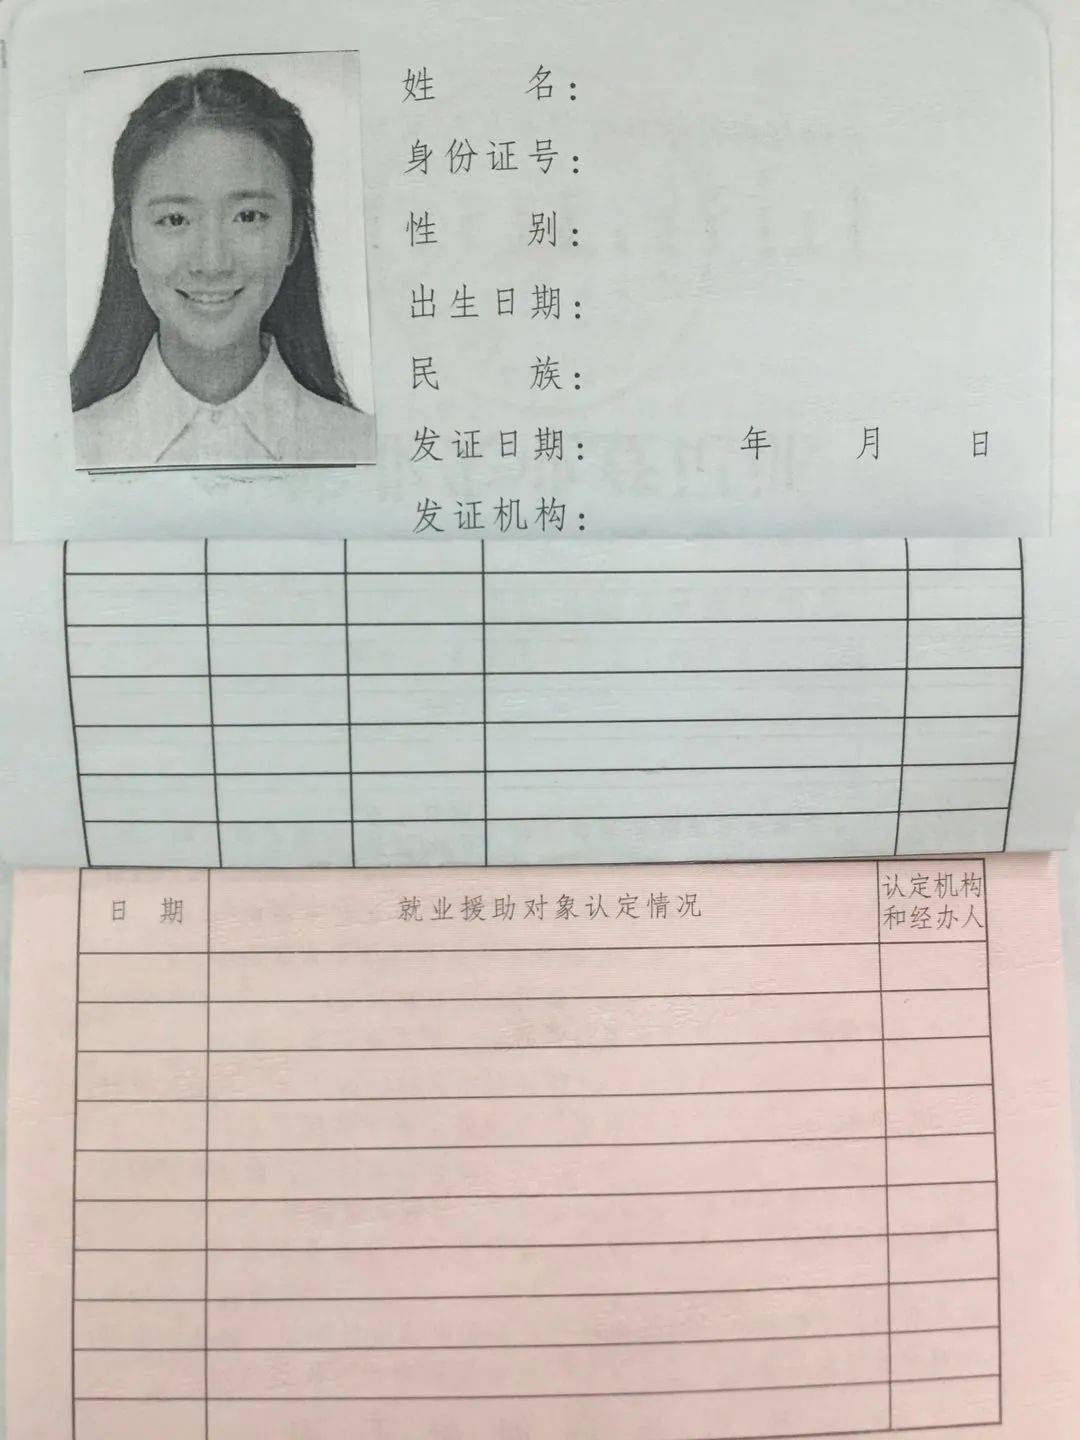 姓 名：
身份证号：
性 别：
出生日期：
民 族：
发证日期： 年 月 日
发证机构：
日 期 就业援助对象认定情况 认定机构
和经办人